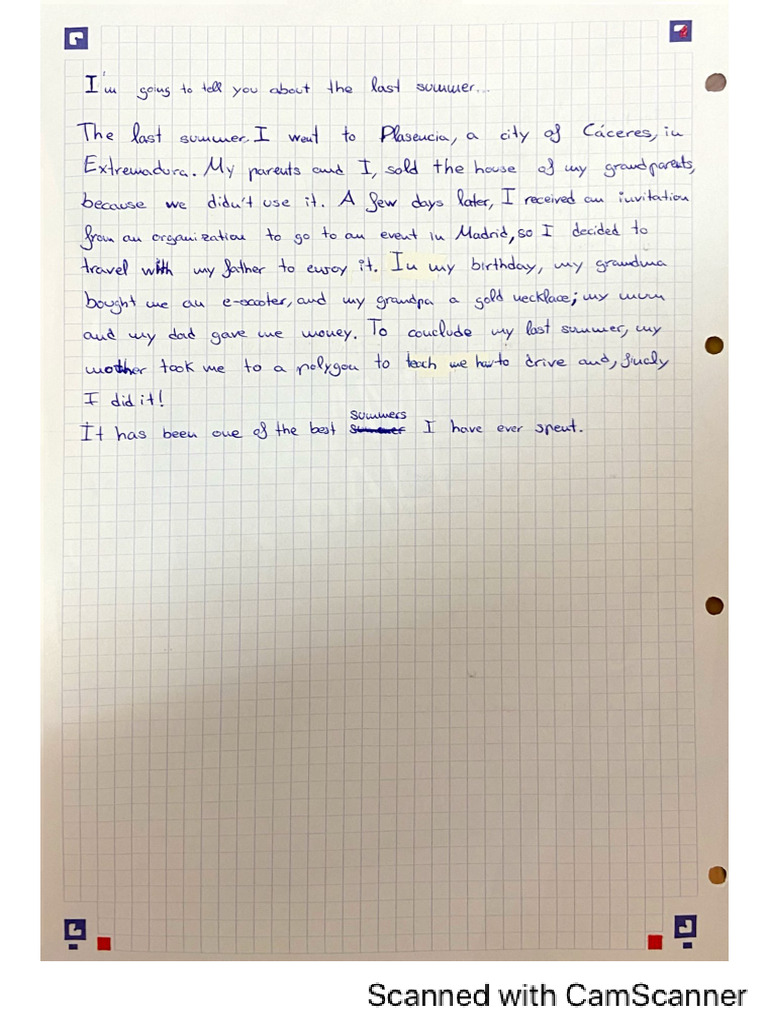 I'm going to tell you about the last summer...
The last summer I went to Plasencia, a city of Cáceres, in
Extremadura. My parents and I, sold the house of my grandparents,
because we didn't use it. A few days later, I received an invitation
from an organization to go to an event in Madrid, so I decided to
travel with my father to enjoy it. In my birthday, my grandma
bought me an e-scooter, and my grandpa a gold necklace; my mum
and my dad gave me money. To conclude my last summer, my
mother took me to a polygon to teach me how to drive and,
I did it!
It has been one of the best summers I have ever spent.
Scanned with CamScanner